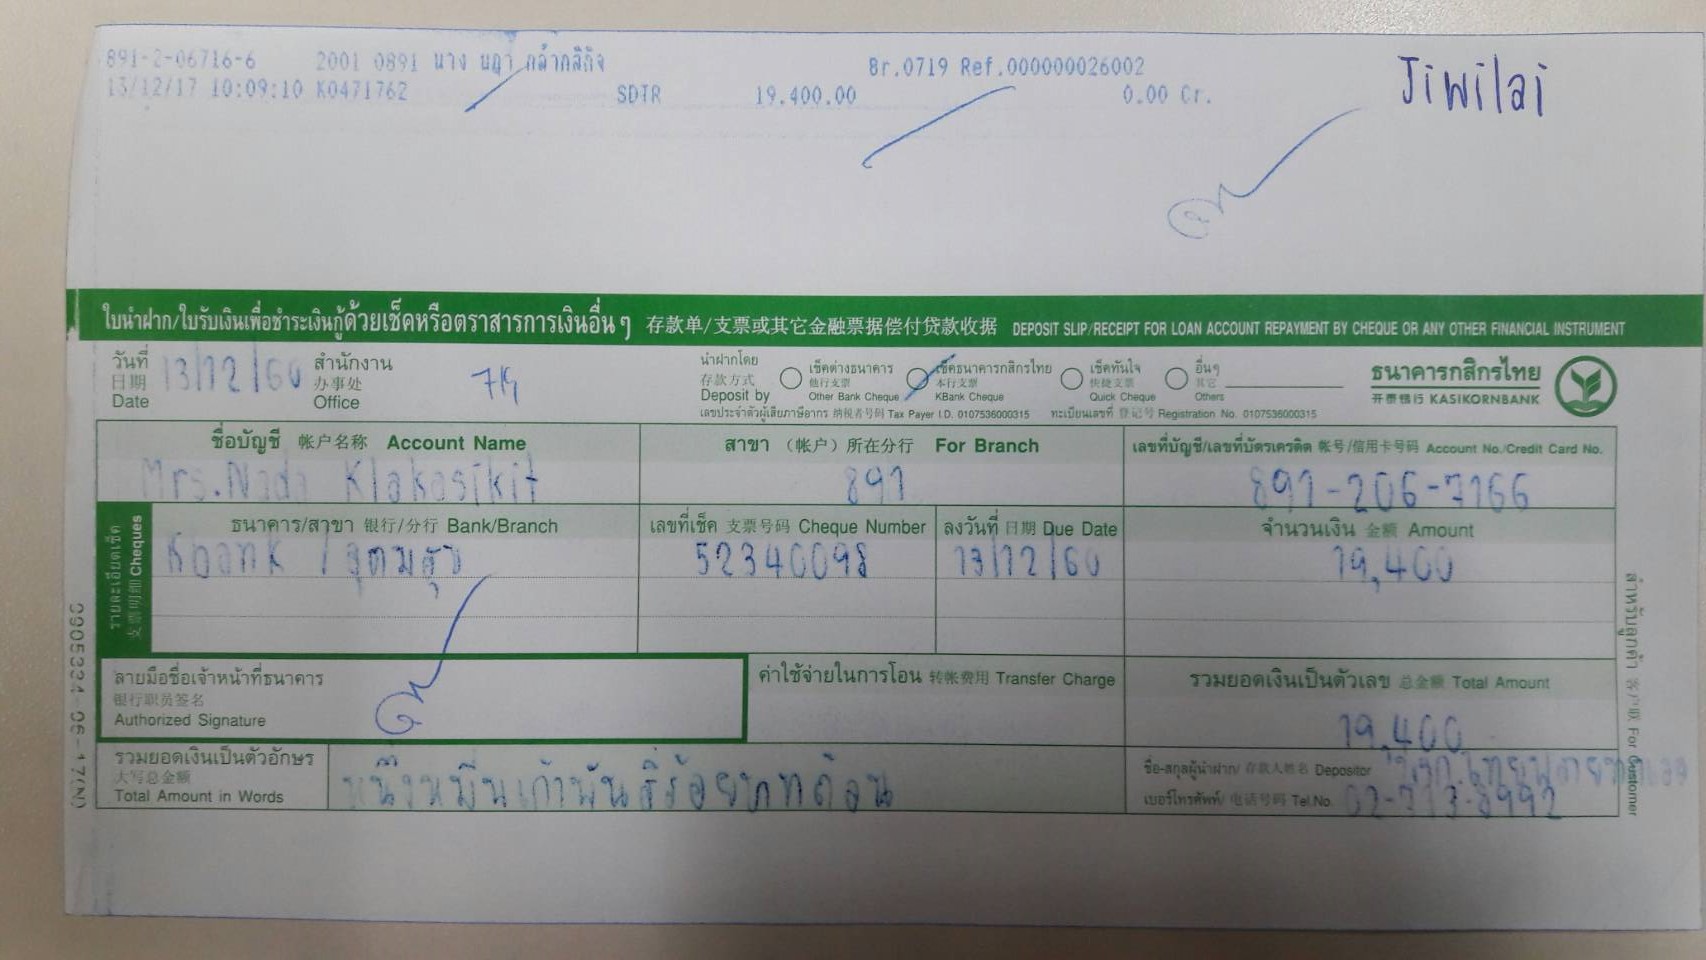 891-2-06716-6 2001 0891 นาง นฎา กล้ากสิกิจ Br.0719 Ref.000000026002
13/12/17 10:09:10 K0471762 SDTR 19,400.00 0.00 Cr.
Jiwilai
ใบนำฝาก/ใบรับเงินเพื่อชำระเงินกู้ด้วยเช็คหรือตราสารการเงินอื่นๆ 存款单/支票或其它金融票据偿付贷款收据 DEPOSIT SLIP/RECEIPT FOR LOAN ACCOUNT REPAYMENT BY CHEQUE OR ANY OTHER FINANCIAL INSTRUMENT
วันที่ 日期 Date 13/12/60 สำนักงาน 办事处 Office
นำฝากโดย 存款方式 Deposit by เช็คต่างธนาคาร 他行支票 Other Bank Cheque เช็คธนาคารกสิกรไทย 本行支票 KBank Cheque เช็คทันใจ 快捷支票 Quick Cheque อื่นๆ 其它 Others
ธนาคารกสิกรไทย
开泰银行 KASIKORNBANK
เลขประจำตัวผู้เสียภาษีอากร 纳税者号码 Tax Payer I.D. 0107536000315 ทะเบียนเลขที่ 登记号 Registration No. 0107536000315
ชื่อบัญชี 帐户名称 Account Name สาขา (帐户) 所在分行 For Branch เลขที่บัญชี/เลขที่บัตรเครดิต 帐号/信用卡号码 Account No./Credit Card No.
Mrs.Nada Klakasikit 891 891-206-7166
รายละเอียดเช็ค 支票明细 Cheques
ธนาคาร/สาขา 银行/分行 Bank/Branch เลขที่เช็ค 支票号码 Cheque Number ลงวันที่ 日期 Due Date จำนวนเงิน 金额 Amount
Kbank / อุดมสุข 52340098 13/12/60 19,400
ลายมือชื่อเจ้าหน้าที่ธนาคาร 银行职员签名 Authorized Signature
ค่าใช้จ่ายในการโอน 转帐费用 Transfer Charge รวมยอดเงินเป็นตัวเลข 总金额 Total Amount
19,400
รวมยอดเงินเป็นตัวอักษร 大写总金额 Total Amount in Words หนึ่งหมื่นเก้าพันสี่ร้อยบาทถ้วน
ชื่อ-สกุลผู้นำฝาก/ 存款人姓名 Depositor
เบอร์โทรศัพท์/ 电话号码 Tel.No. 02-713-8992
สำหรับลูกค้า 客户联 For Customer